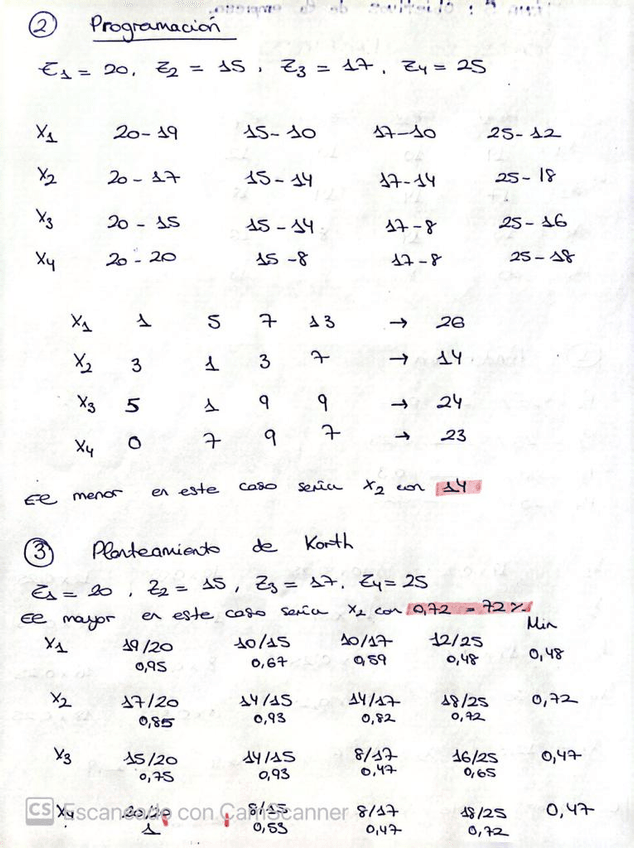 ② Programación
Z1 = 20, Z2 = 15, Z3 = 17, Z4 = 25
X1 20-19 15-10 17-10 25-12
X2 20-17 15-14 17-14 25-18
X3 20-15 15-14 17-8 25-16
X4 20-20 15-8 17-8 25-18
X1 1 5 7 13 → 26
X2 3 1 3 7 → 14
X3 5 1 9 9 → 24
X4 0 7 9 7 → 23
EE menor en este caso sería X2 con 14
③ Planteamiento de Korth
Z1 = 20, Z2 = 15, Z3 = 17, Z4 = 25
EE mayor en este caso sería X2 con 0,72 = 72%
Min
X1 19/20 10/15 10/17 12/25 0,48
0,95 0,67 0,59 0,48
X2 17/20 14/15 14/17 18/25 0,72
0,85 0,93 0,82 0,72
X3 15/20 14/15 8/17 16/25 0,47
0,75 0,93 0,47 0,65
X4 20/20 8/15 8/17 18/25 0,47
1 0,53 0,47 0,72
CS Escaneado con CamScanner